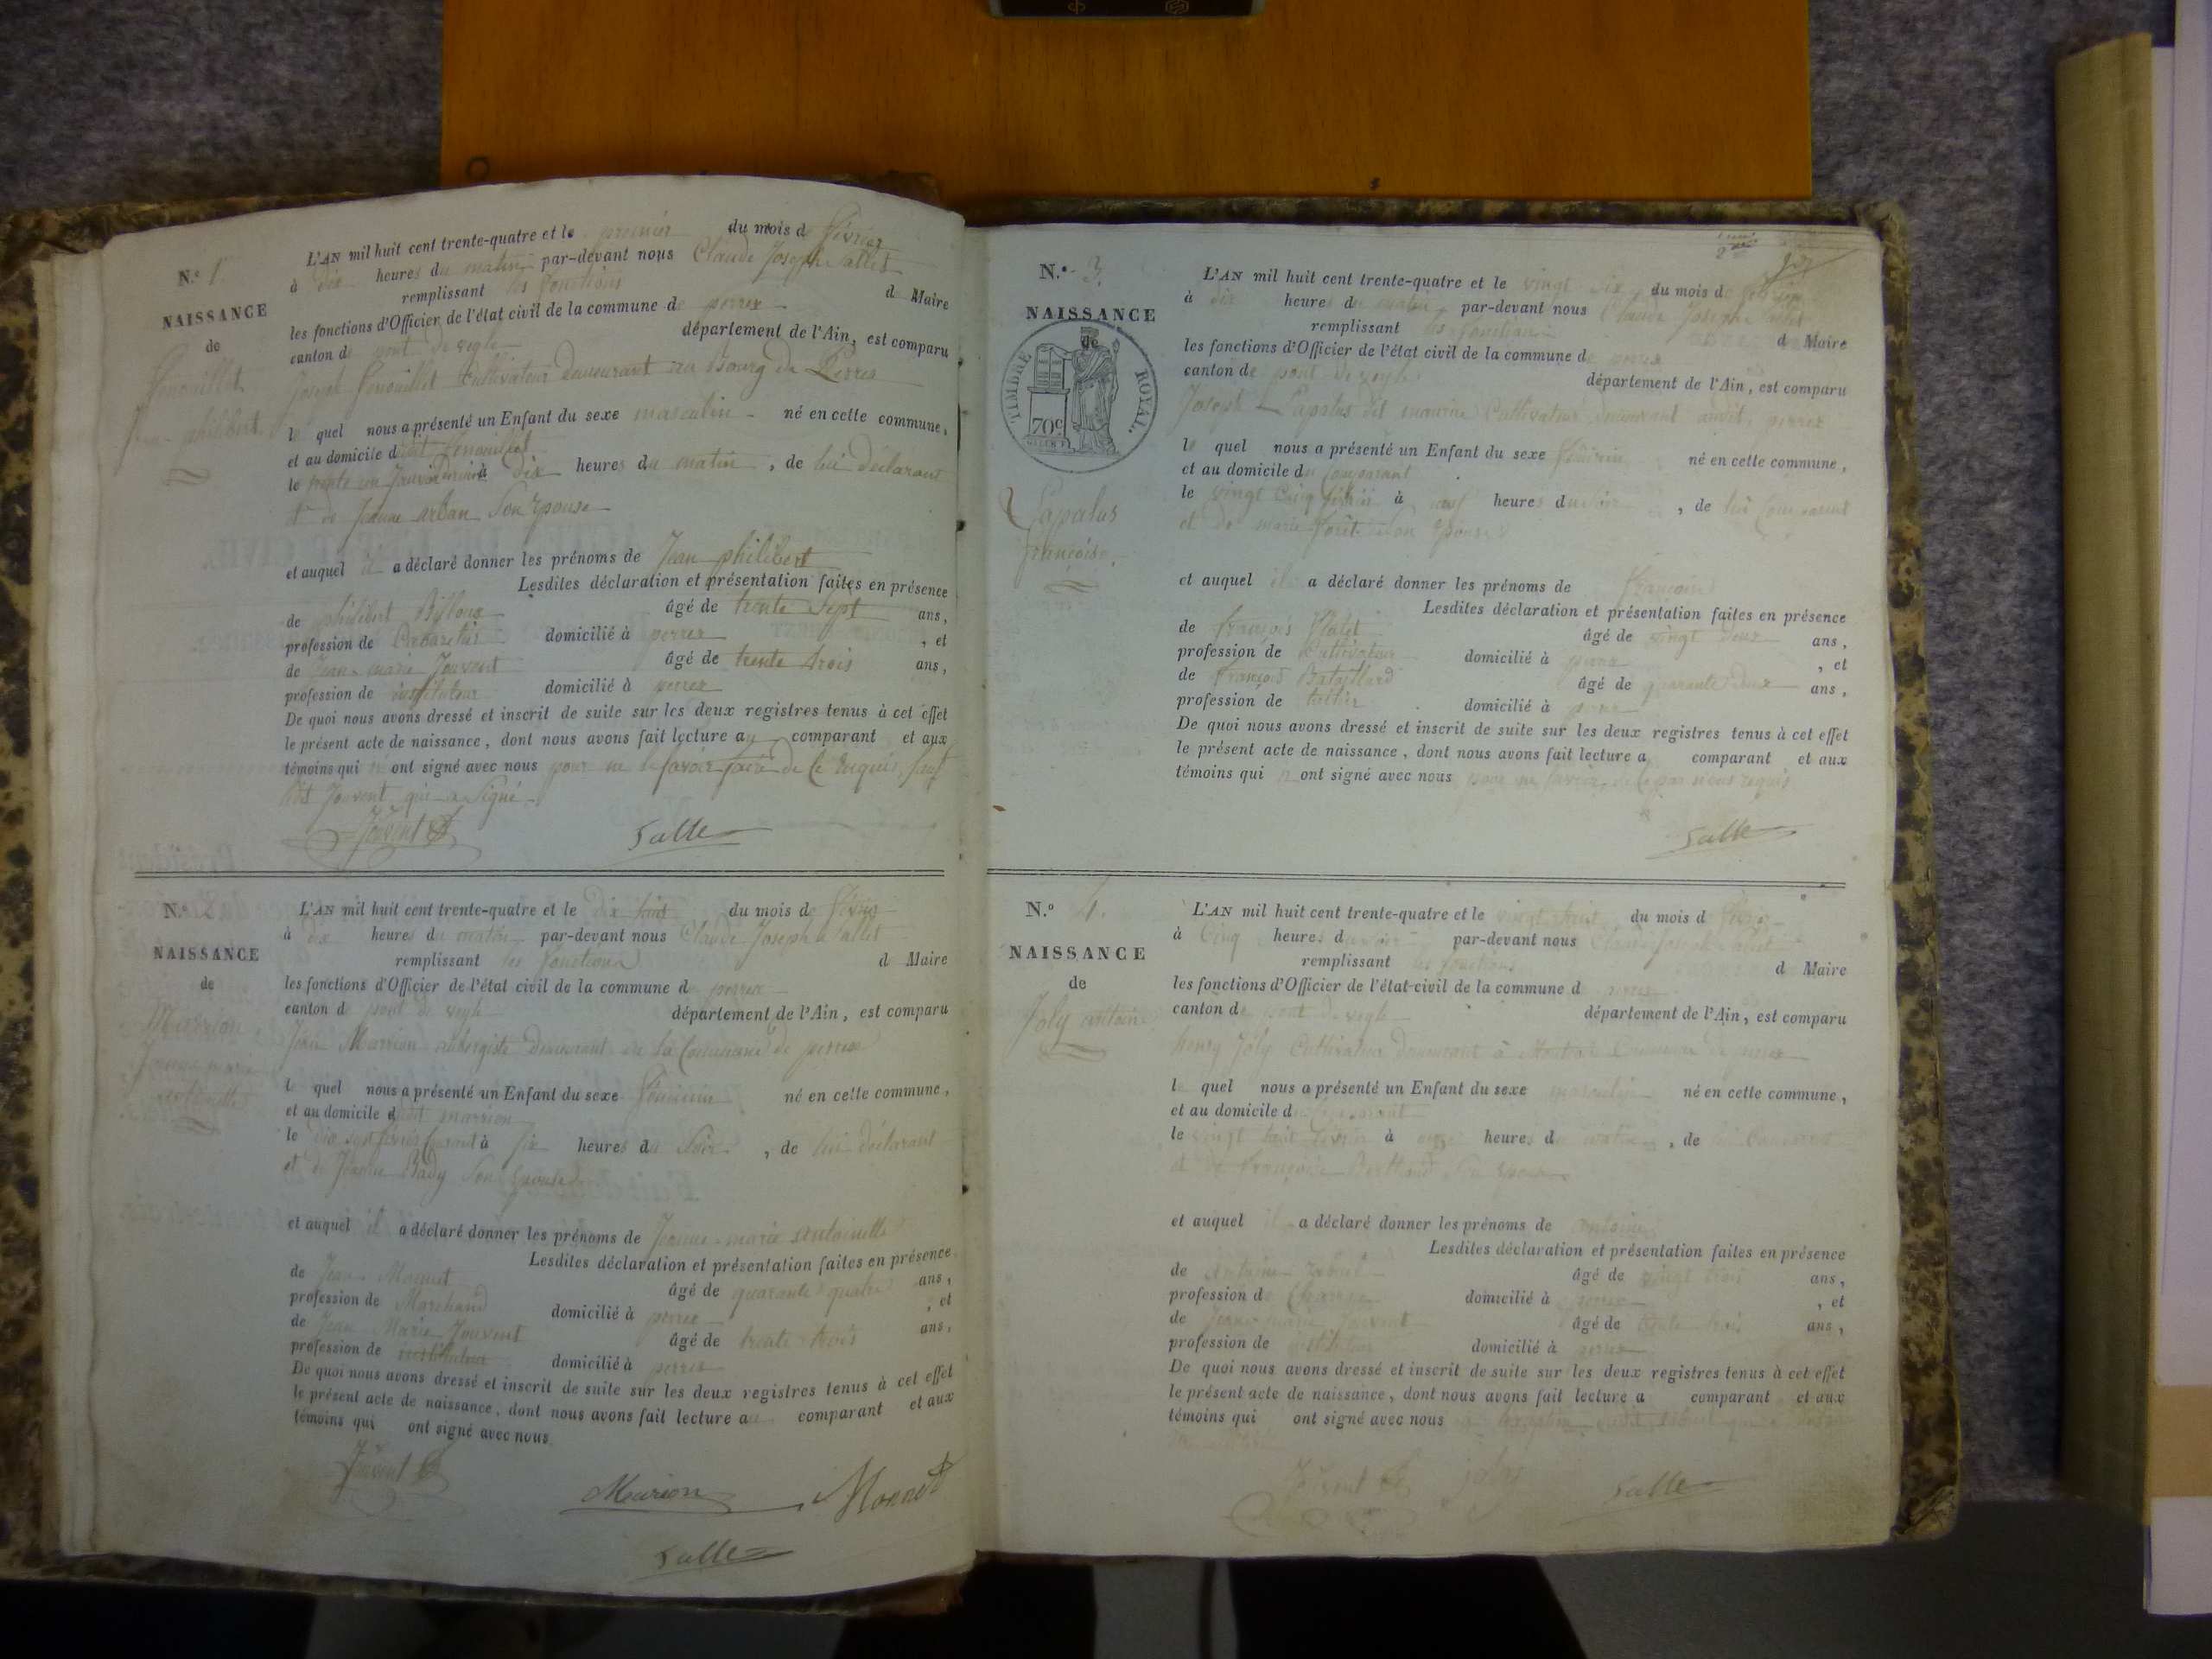 N.° 1.
NAISSANCE
de
Fenouillet
Jean philibert
L'AN mil huit cent trente-quatre et le premier du mois de février
à dix heures du matin par-devant nous Claude Joseph Sallet
remplissant les fonctions d Maire
les fonctions d'Officier de l'état civil de la commune de perrex
canton de pont de veyle département de l'Ain, est comparu
joseph fenouillet Cultivateur demeurant au Bourg de Perrex
le quel nous a présenté un Enfant du sexe masculin né en cette commune,
et au domicile dudit fenouillet
le trente un Janvier à dix heures du matin, de lui déclarant
et de jeanne arban Son Epouse
et auquel il a déclaré donner les prénoms de Jean philibert
Lesdites déclaration et présentation faites en présence
de philibert âgé de trente Sept ans,
profession de Cabaretier domicilié à perrex, et
de Jean marie Jouvent âgé de trente trois ans,
profession de instituteur domicilié à perrex
De quoi nous avons dressé et inscrit de suite sur les deux registres tenus à cet effet
le présent acte de naissance, dont nous avons fait lecture au comparant et aux
témoins qui n ont signé avec nous pour ne le Savoir faire de Ce Enquis, Sauf
Jouvent qui a Signé
Jouvent
Sallet
N.° 2
NAISSANCE
de
Marrion
jeanne marie
antoinette
L'AN mil huit cent trente-quatre et le dix huit du mois de février
à dix heures du matin par-devant nous Claude Joseph Sallet
remplissant les fonctions d Maire
les fonctions d'Officier de l'état civil de la commune de perrex
canton de pont de veyle département de l'Ain, est comparu
Jean Marrion aubergiste Demeurant en la Commune de perrex
le quel nous a présenté un Enfant du sexe féminin né en cette commune,
et au domicile dudit marrion
le dix sept février Courant à Six heures du Soir, de lui déclarant
et de Jeanne Bady Son Epouse
et auquel il a déclaré donner les prénoms de Jeanne marie antoinette
Lesdites déclaration et présentation faites en présence
de Jean Moquet âgé de quarante quatre ans,
profession de Marchand domicilié à perrex, et
de Jean Marie Jouvent âgé de trente trois ans,
profession de instituteur domicilié à perrex
De quoi nous avons dressé et inscrit de suite sur les deux registres tenus à cet effet
le présent acte de naissance, dont nous avons fait lecture au comparant et aux
témoins qui ont signé avec nous
Jouvent
Marion
Sallet
N.° 3
NAISSANCE
de
TIMBRE ROYAL.
70c
Lapalus
françoise
L'AN mil huit cent trente-quatre et le vingt six du mois de février
à dix heures du matin par-devant nous Claude Joseph Sallet
remplissant les fonctions d Maire
les fonctions d'Officier de l'état civil de la commune de perrex
canton de pont de veyle département de l'Ain, est comparu
Joseph Lapalus dit Cultivateur demeurant audit perrex
le quel nous a présenté un Enfant du sexe féminin né en cette commune,
et au domicile du Comparant
le vingt Cinq février à heures du soir, de lui Comparant
et de marie son Epouse
et auquel il a déclaré donner les prénoms de françoise
Lesdites déclaration et présentation faites en présence
de François âgé de vingt deux ans,
profession de Cultivateur domicilié à perrex, et
de François Bataillard âgé de quarante deux ans,
profession de domicilié à perrex
De quoi nous avons dressé et inscrit de suite sur les deux registres tenus à cet effet
le présent acte de naissance, dont nous avons fait lecture a comparant et aux
témoins qui n ont signé avec nous pour ne savoir, de ce par nous requis
Sallet
N.° 4.
NAISSANCE
de
Joly antoine
L'AN mil huit cent trente-quatre et le vingt huit du mois d février
à Cinq heures du soir par-devant nous Claude Joseph Sallet
remplissant les fonctions d Maire
les fonctions d'Officier de l'état-civil de la commune d perrex
canton de pont de veyle département de l'Ain, est comparu
henry Joly Cultivateur demeurant à Commune de perrex
le quel nous a présenté un Enfant du sexe masculin né en cette commune,
et au domicile du Comparant
le vingt huit février à onze heures d matin, de lui Comparant
et de Françoise Berthaud Son Epouse
et auquel il a déclaré donner les prénoms de antoine
Lesdites déclaration et présentation faites en présence
de Antoine âgé de vingt trois ans,
profession d domicilié à perrex, et
de Jean marie Jouvent âgé de trente trois ans,
profession de instituteur domicilié à perrex
De quoi nous avons dressé et inscrit de suite sur les deux registres tenus à cet effet
le présent acte de naissance, dont nous avons fait lecture a comparant et aux
témoins qui ont signé avec nous
Jouvent
Sallet